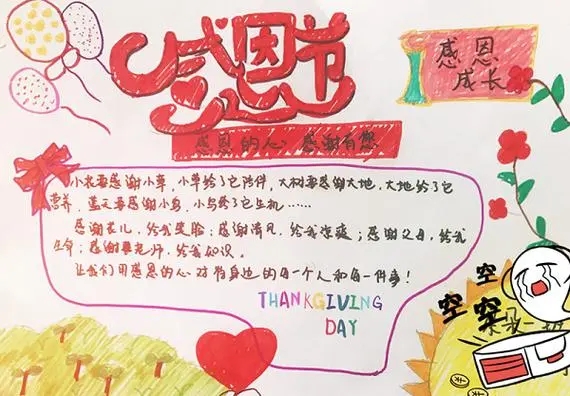 感恩节
感恩
成长
感恩的心 感谢有您
小花要感谢小草，小草给了它陪伴，大树要感谢大地，大地给了它
营养，蓝天要感谢小鸟，小鸟给了它生机……
感谢花儿，给我笑脸；感谢清风，给我凉爽；感谢父母，给我
生命；感谢老师，给我知识。
让我们用感恩的心对待身边的每一个人和每一件事！
THANKGIVING
DAY
空
空
空